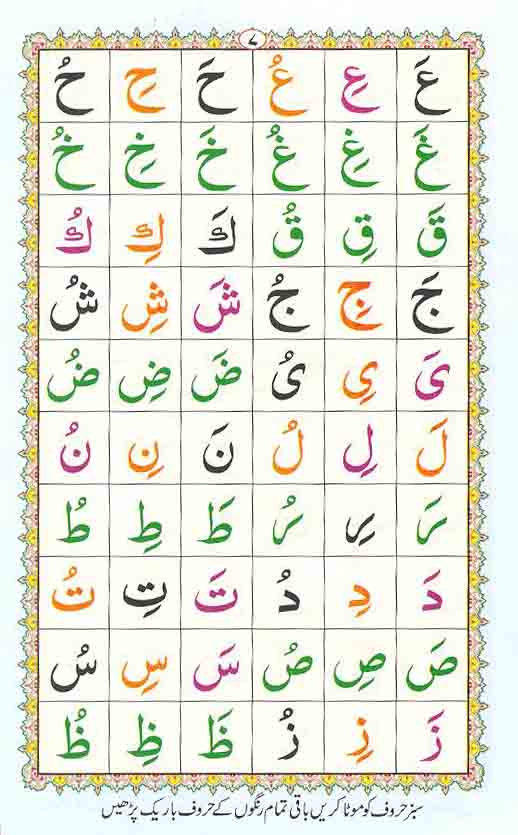 ٧
عَ عِ عُ حَ حِ حُ
غَ غِ غُ خَ خِ خُ
قَ قِ قُ كَ كِ كُ
جَ جِ جُ شَ شِ شُ
یَ یِ یُ ضَ ضِ ضُ
لَ لِ لُ نَ نِ نُ
رَ رِ رُ طَ طِ طُ
دَ دِ دُ تَ تِ تُ
صَ صِ صُ سَ سِ سُ
زَ زِ زُ ظَ ظِ ظُ
سبز حروف کو موٹا کریں باقی تمام رنگوں کے حروف باریک پڑھیں